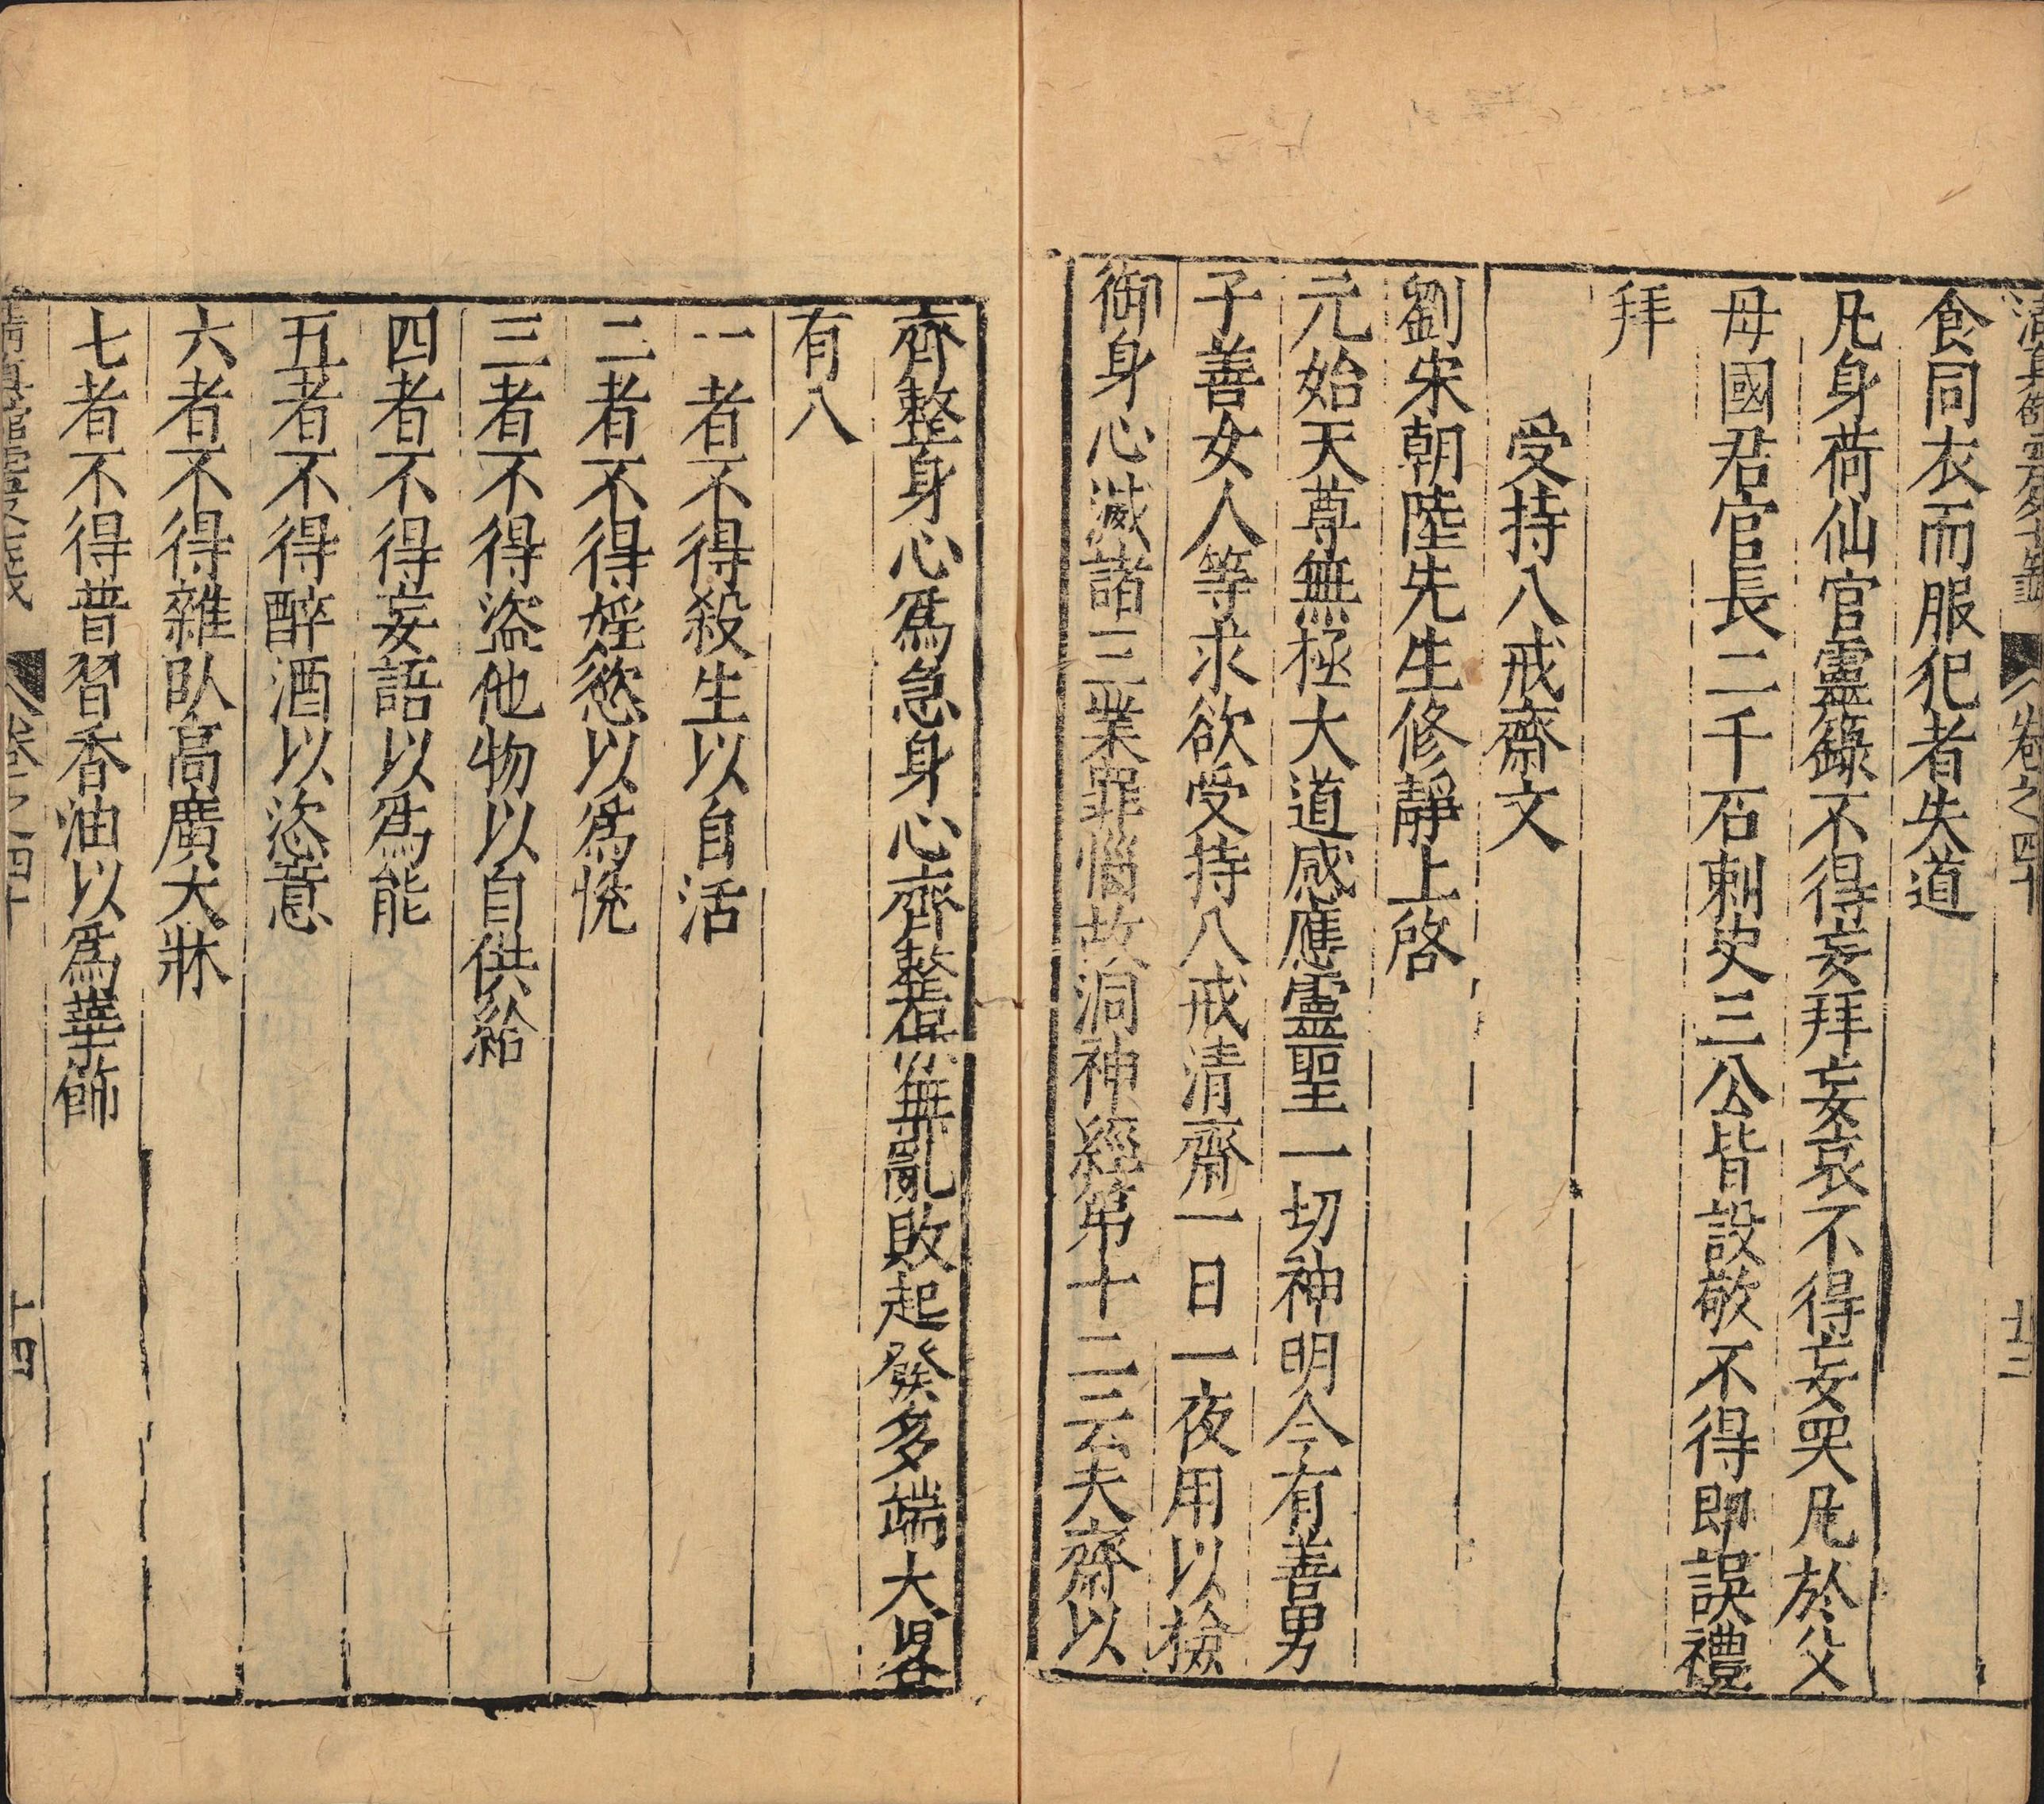 食同衣而服犯者失道
凡身荷仙官靈籙不得妄拜妄哀不得妄哭凡於父
母國君官長二千石刺史三公皆設敬不得即誤禮
拜
受持八戒齋文
劉宋朝陸先生修靜上啓
元始天尊無極大道感應靈聖一切神明今有善男
子善女人等求欲受持八戒清齋一日一夜用以檢
御身心滅諸三業罪惱故洞神經第十二云夫齋以
齊整身心爲急身心齊整保無亂敗起發多端大畧
有八
一者不得殺生以自活
二者不得婬慾以爲悅
三者不得盜他物以自供給
四者不得妄語以爲能
五者不得醉酒以恣意
六者不得雜臥高廣大牀
七者不得普習香油以爲華飾
卷之四十
十四